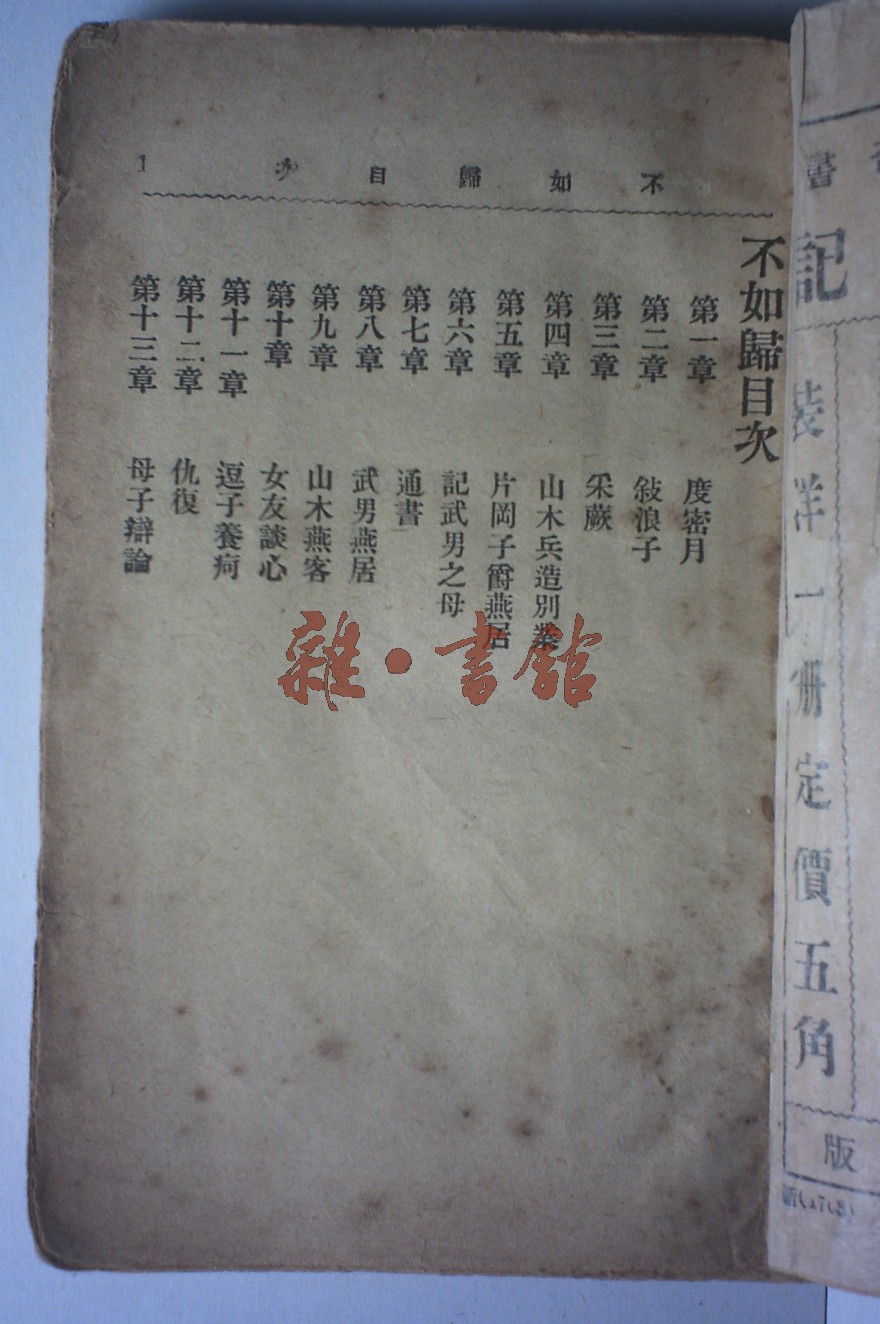 書
記
裝洋一册定價五角
版
不如歸目次
1
不如歸目次
第一章 度密月
第二章 敍浪子
第三章 采蕨
第四章 山木兵造別業
第五章 片岡子爵燕居
第六章 記武男之母
第七章 通書
第八章 武男燕居
第九章 山木燕客
第十章 女友談心
第十一章 逗子養疴
第十二章 仇復
第十三章 母子辯論
雜·書館